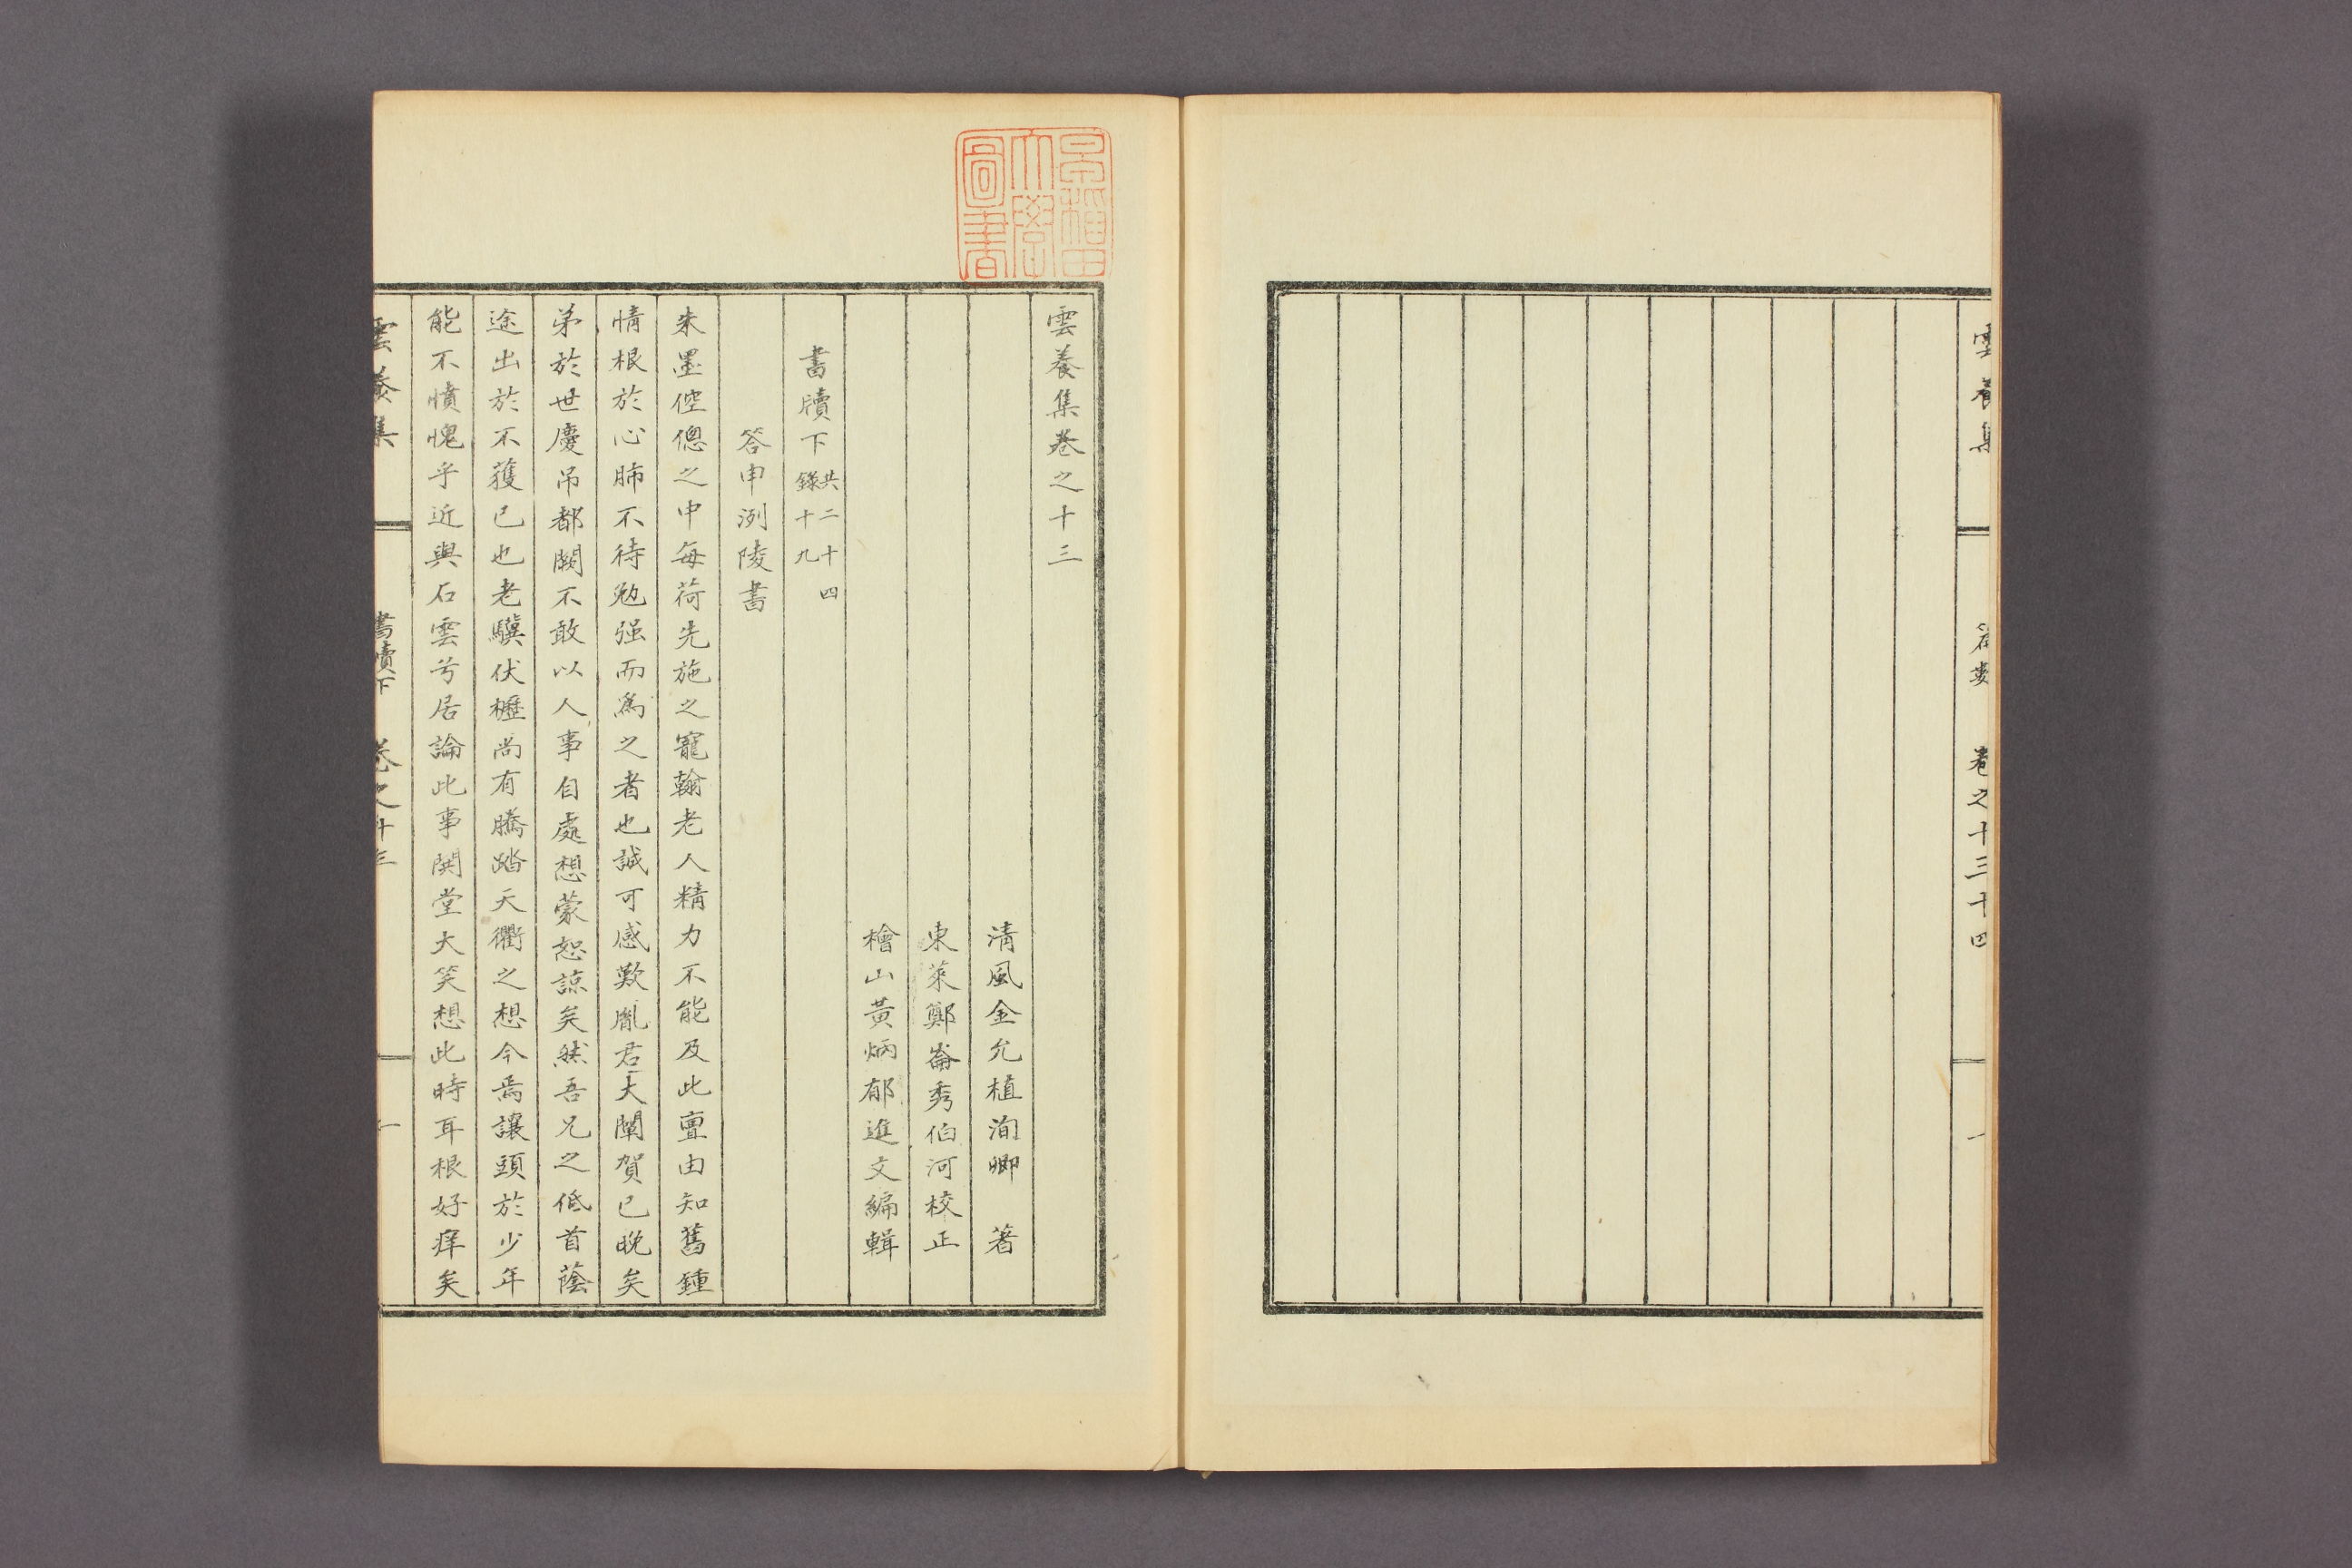 雲養集
卷之十三十四
一
早稻田
大學
圖書
雲養集卷之十三
清風金允植洵卿 著
東萊鄭崙秀伯河校正
檜山黃炳郁進文編輯
書牘下 共二十四
錄十九
答申洌陵書
朱墨倥傯之中每荷先施之寵翰老人精力不能及此亶由知舊鍾
情根於心肺不待勉强而爲之者也誠可感歎胤君大闡賀已晚矣
弟於世慶吊都闕不敢以人事自處想蒙恕諒矣然吾兄之低首蔭
途出於不獲已也老驥伏櫪尚有騰踏天衢之想今焉讓頭於少年
能不憤愧乎近與石雲兮居論此事鬨堂大笑想此時耳根好痒矣
雲養集
書牘下
卷之十三
一